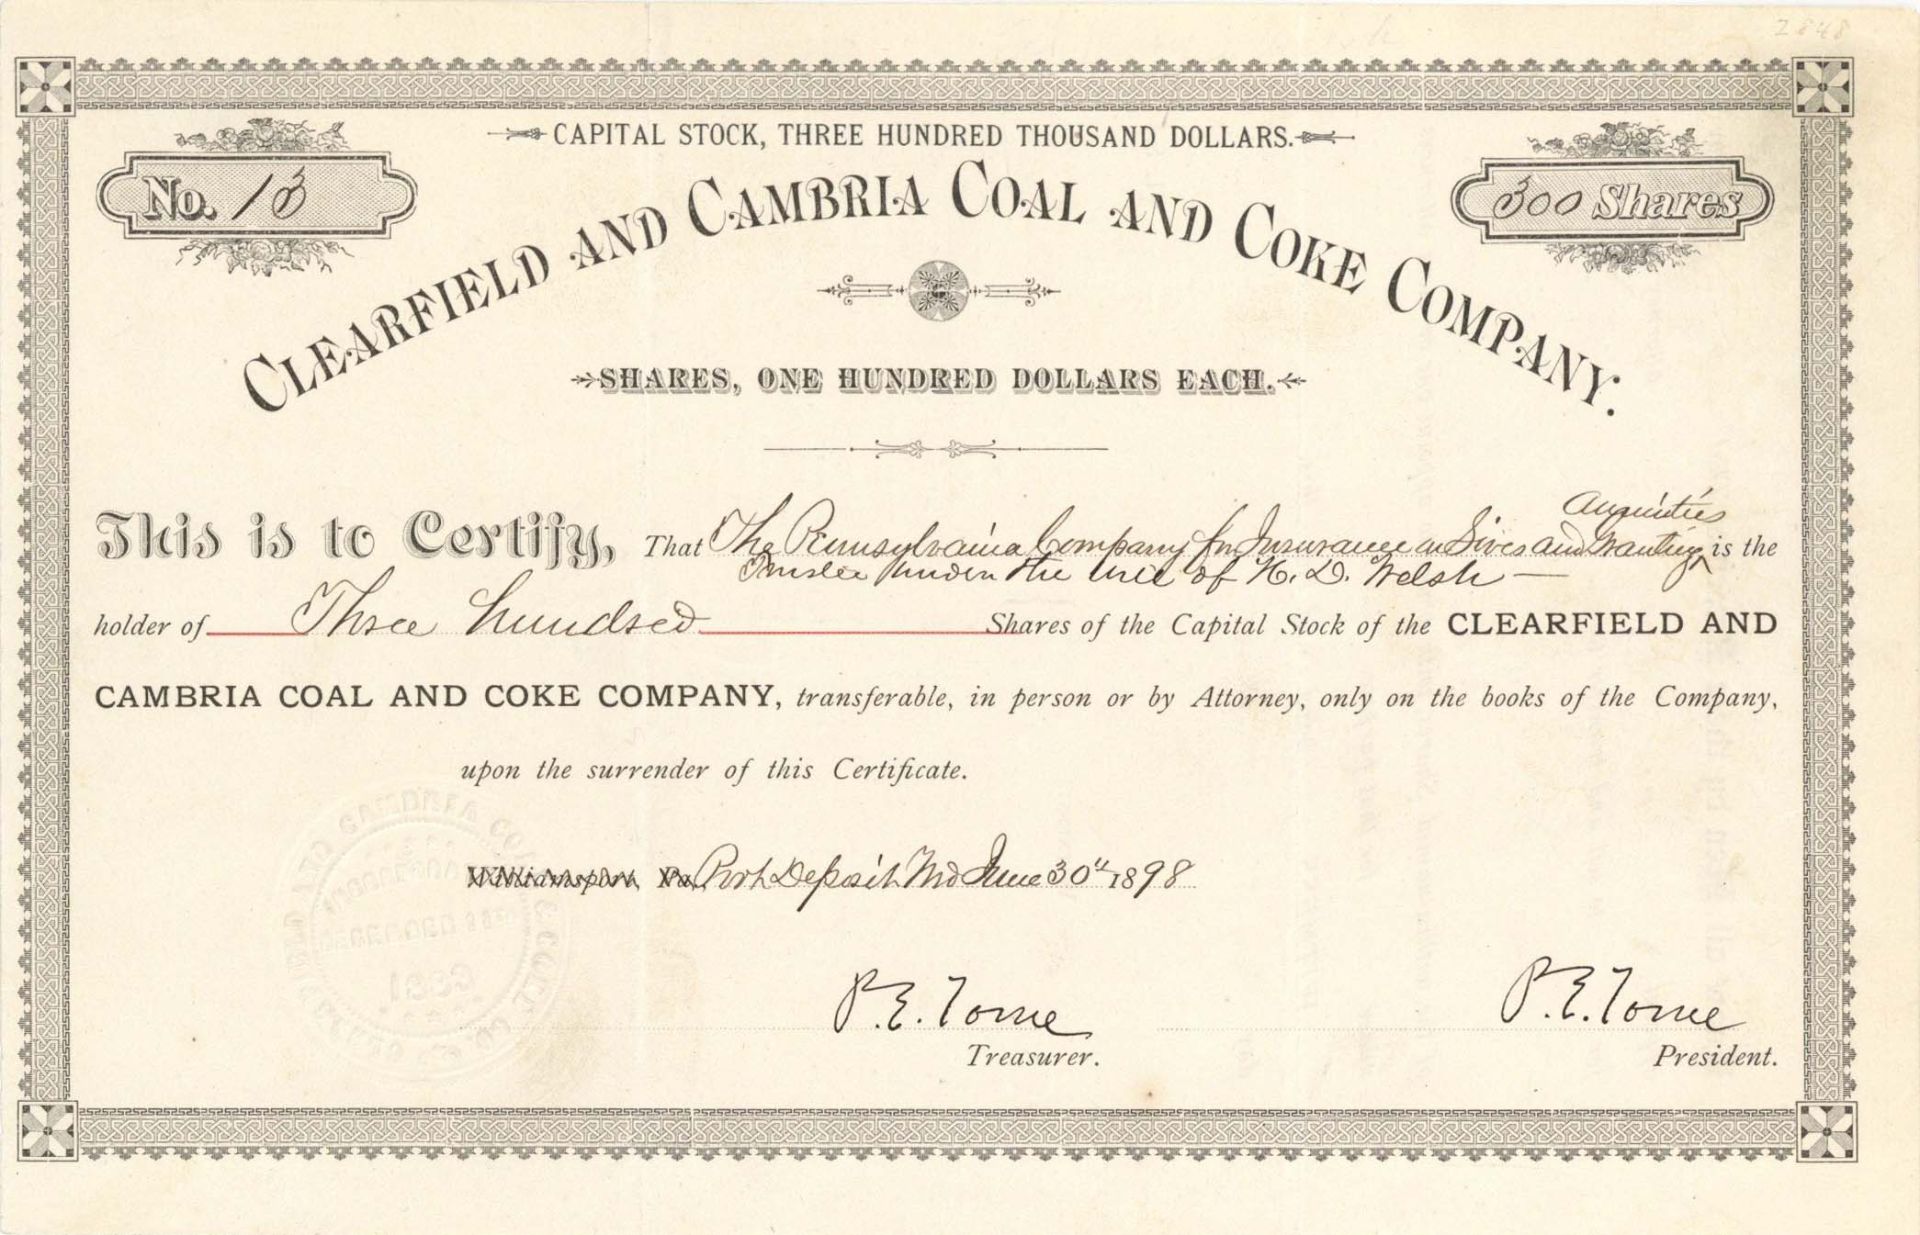 2848
CAPITAL STOCK, THREE HUNDRED THOUSAND DOLLARS.
No. 13
300 Shares
CLEARFIELD AND CAMBRIA COAL AND COKE COMPANY.
SHARES, ONE HUNDRED DOLLARS EACH.
Annuities
This is to Certify, That The Pennsylvania Company for Insurance on Lives and Granting is the
Trustee under the Will of H. D. Welsh
holder of Three hundred Shares of the Capital Stock of the CLEARFIELD AND
CAMBRIA COAL AND COKE COMPANY, transferable, in person or by Attorney, only on the books of the Company,
upon the surrender of this Certificate.
Williamsport, Pa., Port Deposit Md June 30th 1898
P. E. Tome P. E. Tome
Treasurer. President.